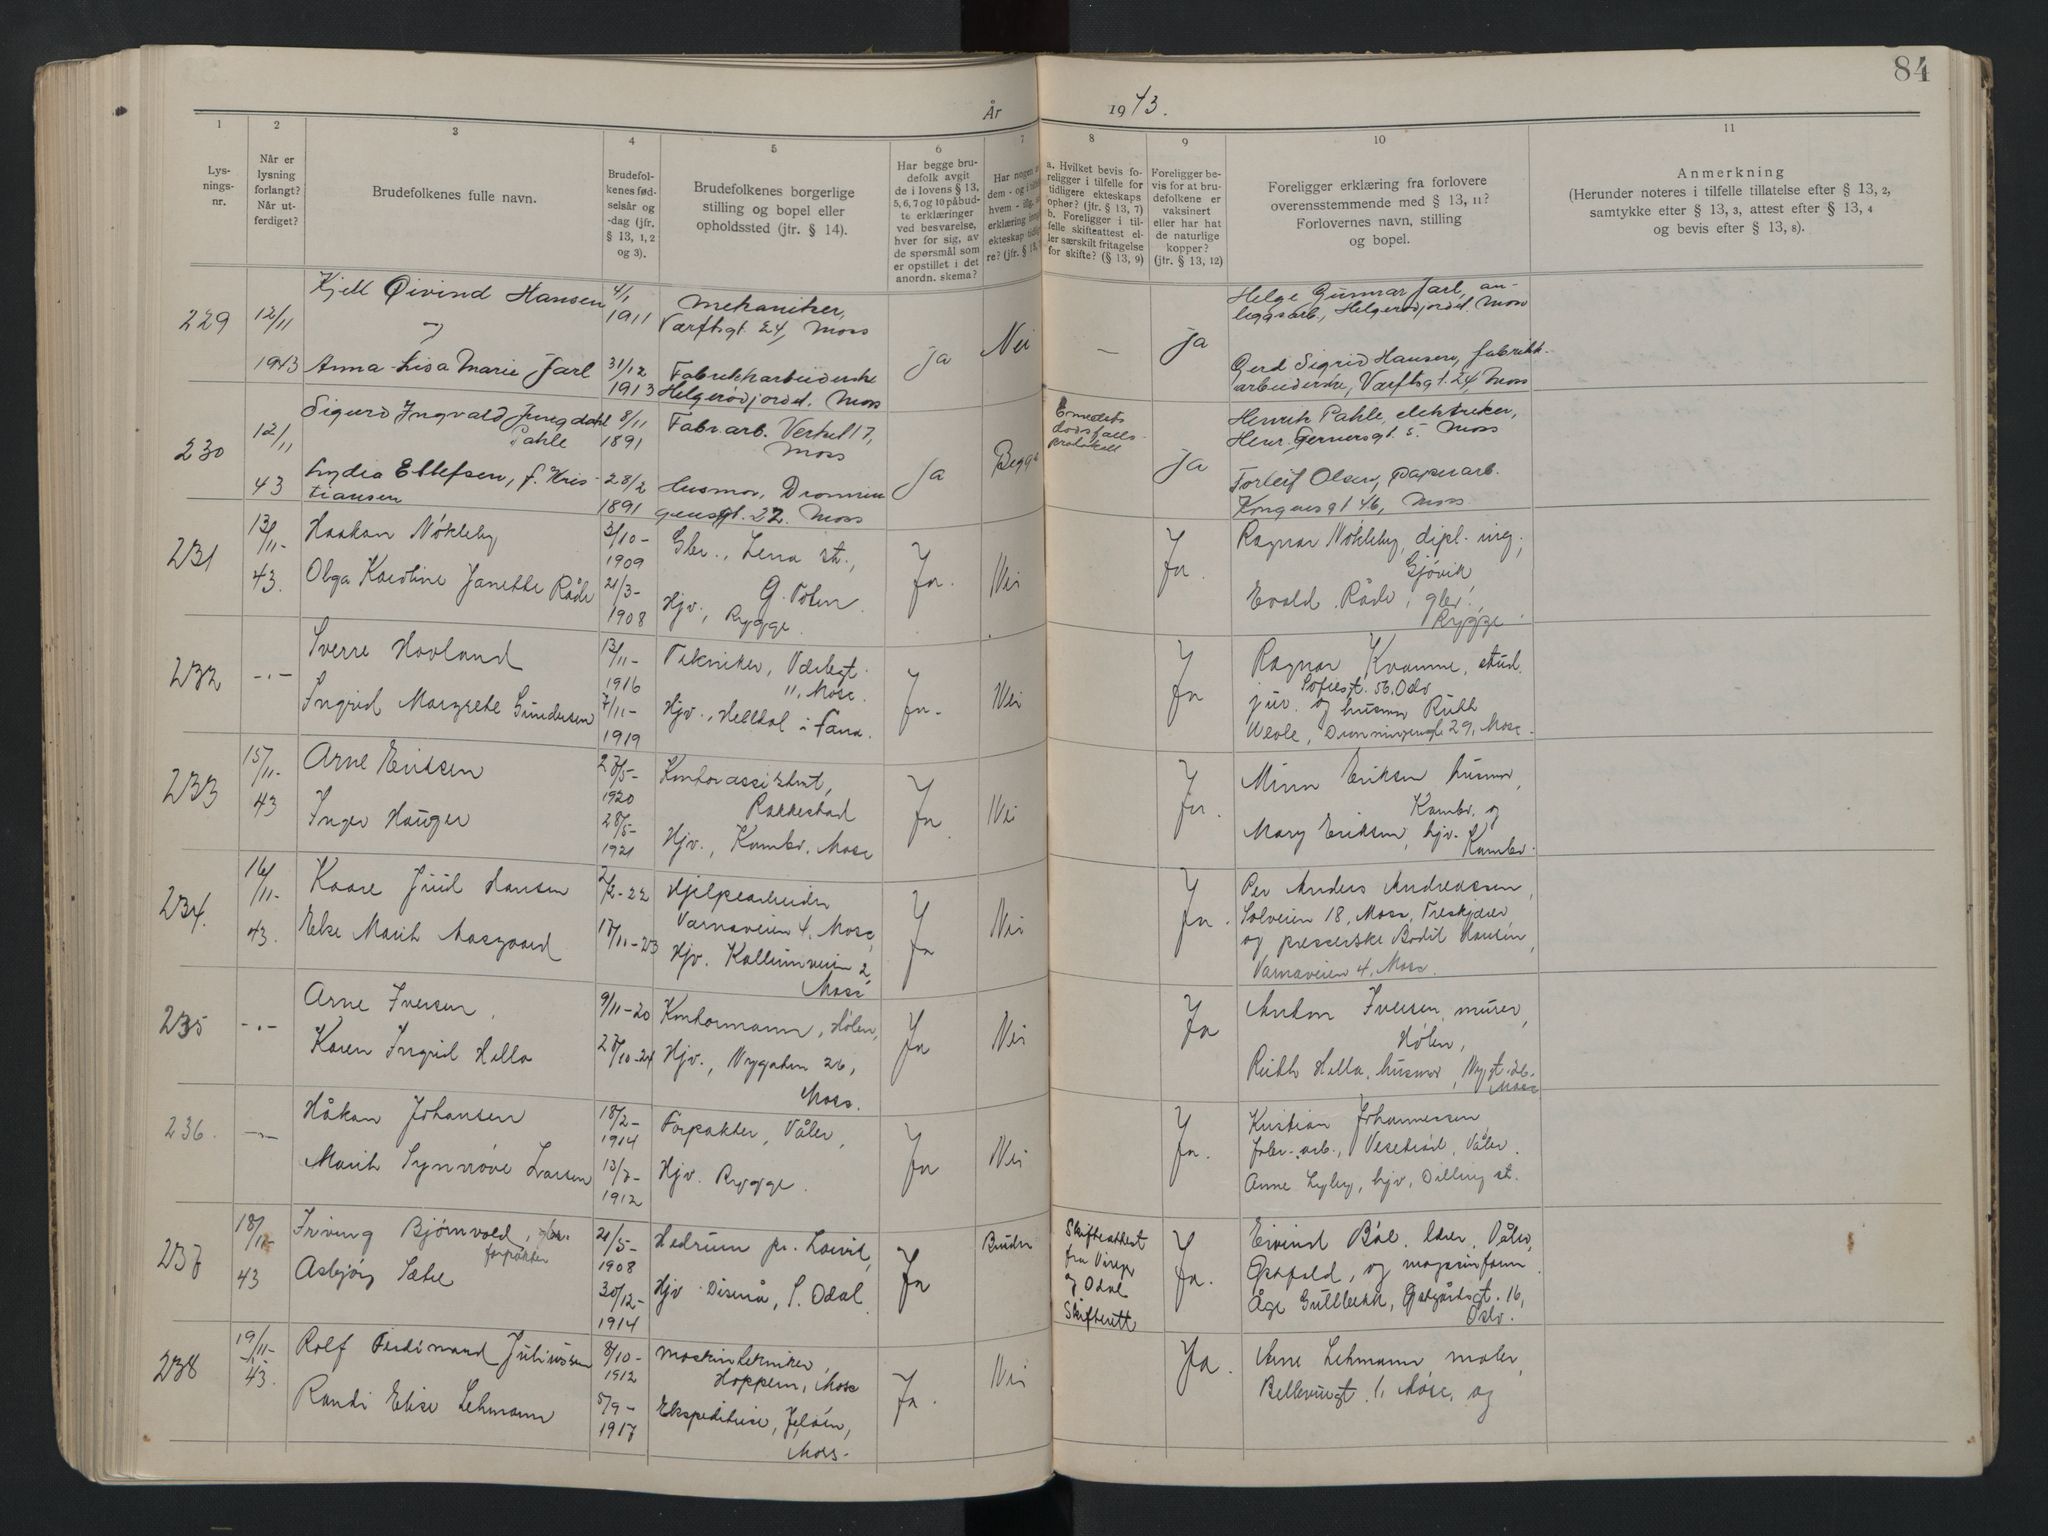 84
År 1943.
1
2
3
4
5
6
7
8
9
10
11
Lys-
nings-
nr.
Når er
lysning
forlangt?
Når ut-
ferdiget?
Brudefolkenes fulle navn.
Brudefol-
kenes fød-
selsår og
-dag (jfr.
§ 13, 1, 2
og 3).
Brudefolkenes borgerlige
stilling og bopel eller
opholdssted (jtr. § 14).
Har begge bru-
defolk avgit
de i lovens § 13,
5, 6, 7 og 10 påbud-
te erklæringer
ved besvarelse,
hver for sig, av
de spørsmål som
er opstillet i det
anordn. skema?
Har nogen
dem - og i
hvem -
erklæring
ekteskap
re? (jfr. § 13,
a. Hvilket bevis fo-
religger i tilfelle for
tidligere ekteskaps
ophør? (jfr. § 13, 7)
b. Foreligger i til-
felle skifteattest el-
ler særskilt fritagelse
for skifte? (§ 13, 9)
Foreligger be-
vis for at bru-
defolkene er
vaksinert
eller har hat
de naturlige
kopper?
(jtr. § 13, 12)
Foreligger erklæring fra forlovere
overensstemmende med § 13, 11?
Forlovernes navn, stilling
og bopel.
Anmerkning
(Herunder noteres i tilfelle tillatelse efter § 13, 2,
samtykke efter § 13, 3, attest efter § 13, 4
og bevis efter § 13, 8).
229
12/11
1943
Kjell Øivind Hansen
Anna-Lisa Marie Jarl
4/1
1911
31/12
1913
Mekaniker,
Værftsgt. 24, Moss
Fabrikkarbeiderske
Helgerødjordet. Moss
ja
Nei
—
ja
Helge Gunnar Jarl, an-
leggsarb., Helgerødjordet. Moss
Gerd Sigrid Hansen, fabrikk-
arbeiderske, Værftsgt. 24, Moss
230
12/11
43
Sigurd Ingvald Ljungdahl
Pahle
Lydia Ellefsen, f. Kris-
tiansen
8/11
1891
28/2
1891
Fabr.arb. Verket 17,
Moss
Husmor, Dronnin
gensgt. 22. Moss
ja
Begge
Enmedets
dødsfalls-
protokoll
ja
Henrik Pahle, elektriker,
Henr. Gernersgt. 5. Moss
Torleif Olsen, papirarb.
Kongensgt 46, Moss
231
13/11-
43.
Haakon Nökleby
Olga Karoline Janette Råde
3/10-
1909
21/3-
1908
Gbr., Lena st.,
Ø. Toten.
Hjv., Rygge.
Ja.
Nei
Ja.
Ragnar Nökleby, dipl. ing.,
Gjövik,
Evald Råde, gbr.,
Rygge.
232
-.-
Sverre Hovland
Ingrid Margrethe Gundersen
13/11-
1916
7/11-
1919
Tekniker, Vårlegt.
11, Moss.
Hjv., Helldal i Fana.
Ja.
Nei
Ja
Ragnar Kvamme, stud.
Sofiesgt. 56, Oslo
jur. og husmor Ruth
Weole, Dronningensgt 29, Moss.
233
15/11-
43
Arne Eriksen
Inger Hauger
27/5-
1920
28/5-
1921
Kontorassistent,
Rakkestad
Hjv., Kambo, Moss
Ja.
Nei
Ja.
Minn Eriksen husmor,
Kambo. og
Mary Eriksen, hjv.
Kambo.
234.
16/11-
43.
Kaare Juul Hansen
Else Marit Aasgaard
2/2-22
17/11-23
Hjelpearbeider
Varnaveien 4, Moss,
Hjv. Kallumveien 2,
Moss
Ja
Nei
Ja.
Per Anders Andreassen,
Solveien 18, Moss, Treskjærer,
og presserske Bodil Hansen,
Varnaveien 4, Moss.
235
-.-
Arne Iversen.
Karen Ingrid Holla
9/11-20
27/10-24
Kontormann, Hölen,
Hjv., Nygaten 26,
Moss.
Ja
Nei
Ja
Anton Iversen, murer,
Hölen,
Ruth Holla, husmor, Nygt. 26.
Moss
236.
-.-
Håkan Johansen
Marit Synnöve Larsen
18/2-
1914
13/7-
1912
Forpakter, Våler,
Hjv. Rygge.
Ja
Nei
Ja.
Kristian Johannessen,
fabr.-arb., Vesetrud, Våler.
Anne Lyby, hjv, Dilling st.
237
18/11-
43
Irving Bjørnvold, gbr.
forpakter
Asbjörg Sætre
21/5-
1908
30/12-
1914
Hedrum pr. Larvik,
Hjv Disenå, S. Odal
Ja
Bruden
Skifteattest
fra Vinger
og Odal
Skifterett
Ja.
Eivind Böe, lærer, Våler,
Østfold, og magasinform.
Åge Gullbekk,
Oslo.
238
19/11-
43.
Rolf Ferdinand Juliussen
Randi Elise Lehmann
8/10-
1912
5/9-
1917
Maskintekniker,
Hoppern, Moss
Ekspeditrise, Jelöen,
Moss.
Ja.
Nei
Ja.
Arne Lehmann, maler,
Bellevuegt. 1, Moss, og